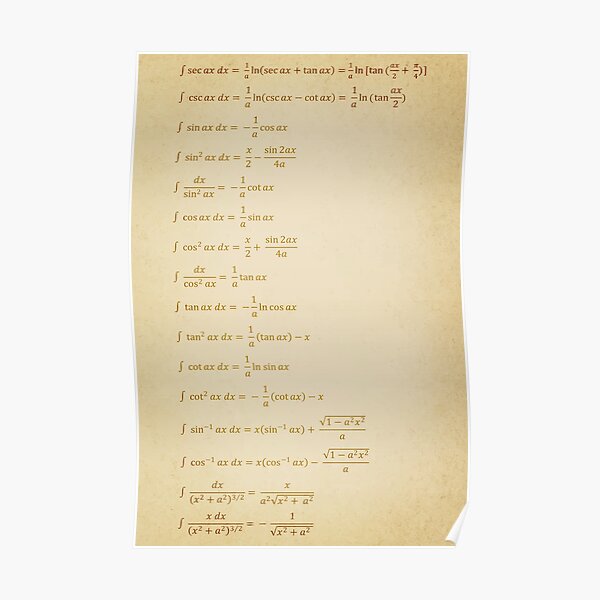 ∫ sec ax dx = 1/a ln(sec ax + tan ax) = 1/a ln [tan (ax/2 + π/4)]
∫ csc ax dx = 1/a ln(csc ax − cot ax) = 1/a ln (tan ax/2)
∫ sin ax dx = − 1/a cos ax
∫ sin² ax dx = x/2 − sin 2ax/4a
∫ dx/sin² ax = − 1/a cot ax
∫ cos ax dx = 1/a sin ax
∫ cos² ax dx = x/2 + sin 2ax/4a
∫ dx/cos² ax = 1/a tan ax
∫ tan ax dx = − 1/a ln cos ax
∫ tan² ax dx = 1/a (tan ax) − x
∫ cot ax dx = 1/a ln sin ax
∫ cot² ax dx = − 1/a (cot ax) − x
∫ sin⁻¹ ax dx = x(sin⁻¹ ax) + √(1 − a²x²)/a
∫ cos⁻¹ ax dx = x(cos⁻¹ ax) − √(1 − a²x²)/a
∫ dx/(x² + a²)^3/2 = x/a²√(x² + a²)
∫ x dx/(x² + a²)^3/2 = − 1/√(x² + a²)